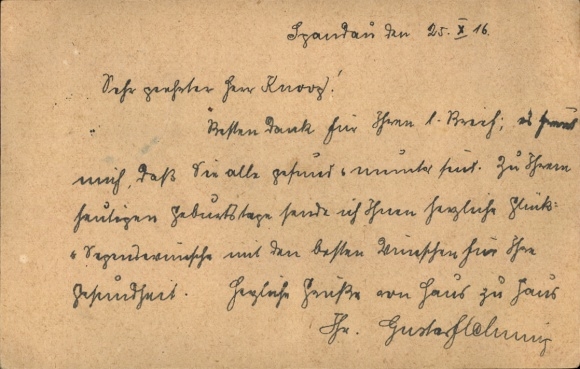 Spandau den 25. X 16.
Sehr geehrter Herr Knoop!
Besten Dank für Ihren l. Brief; es freut
mich, daß Sie alle gesund u munter sind. Zu Ihrem
heutigen Geburtstage sende ich Ihnen herzliche Glück-
u Segenswünsche mit den besten Wünschen für Ihre
Gesundheit. Herzliche Grüße von Haus zu Haus
Ihr Gustav